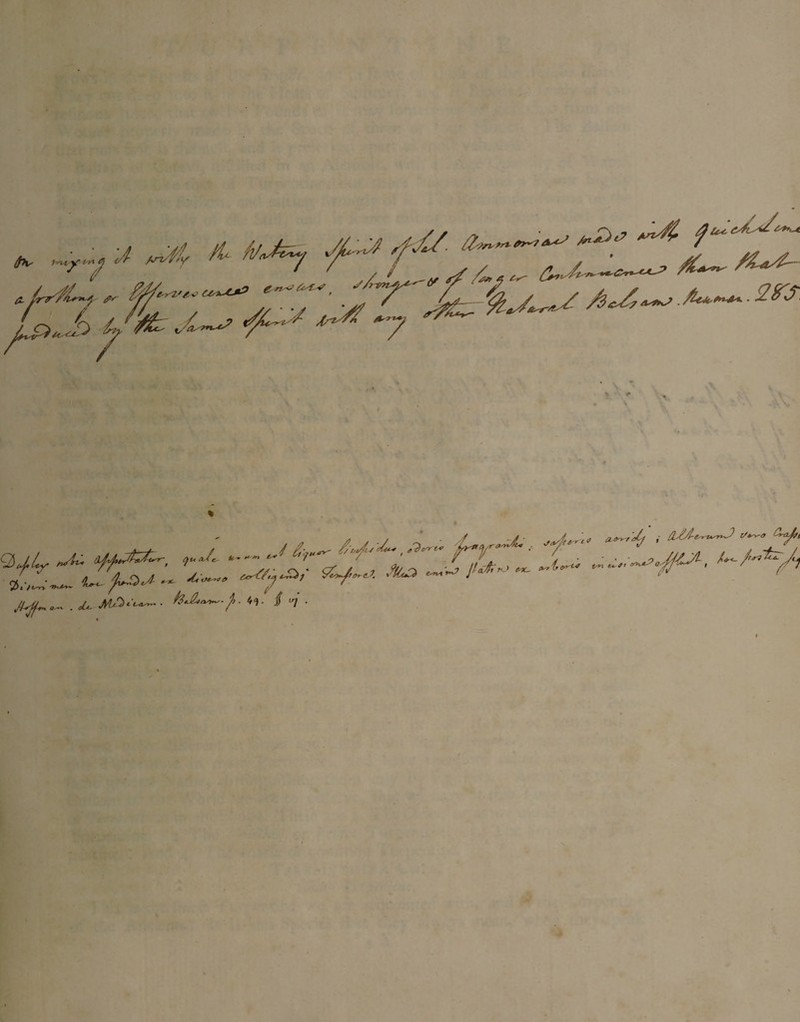 On mixing it with the Watery Spirit of Sal. Ammoniac made with quicklime
a frothing or Effervescence ensues, stronger & of longer Continuance than that
produced by the same Spirit with any other Natural Balsam. Neuman. 285
Duplex nobis apportatur, quale unum est liquor limpidus, odoris fragrantis, saporis acridi; Alterum vero Crass
Discrimen hoc pendet ex diverso colligendi Tempore. Illud enim statim ex arboris incisione effluit, hoc postea
Hoffman. de Medicam. Balsam. p. 49. § vj.